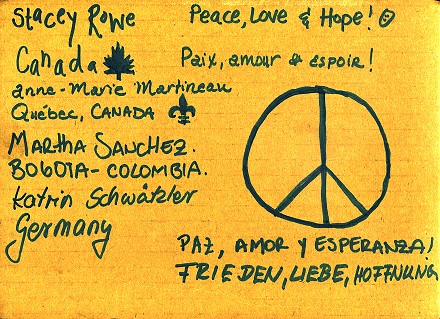 Stacey Rowe
Canada
Anne-Marie Martineau
Québec, CANADA
MARTHA SANCHEZ.
BOGOTA-COLOMBIA.
Katrin Schwätzler
Germany
Peace, Love & Hope!
Paix, amour & espoir!
PAZ, AMOR Y ESPERANZA!
FRIEDEN, LIEBE, HOFFNUNG